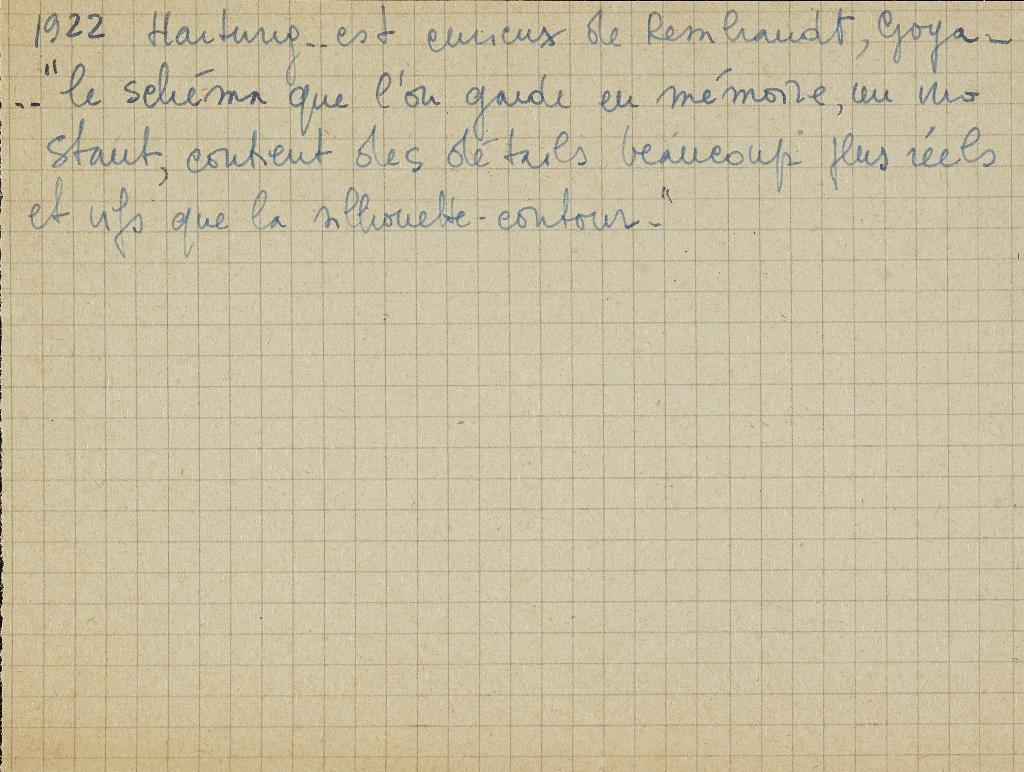 1922 Hartung.. est curieux de Rembrandt, Goya_
.. "le schéma que l'on garde en mémoire, un ins
stant, contient des détails beaucoup plus réels
et vifs que la silhouette-contour_"